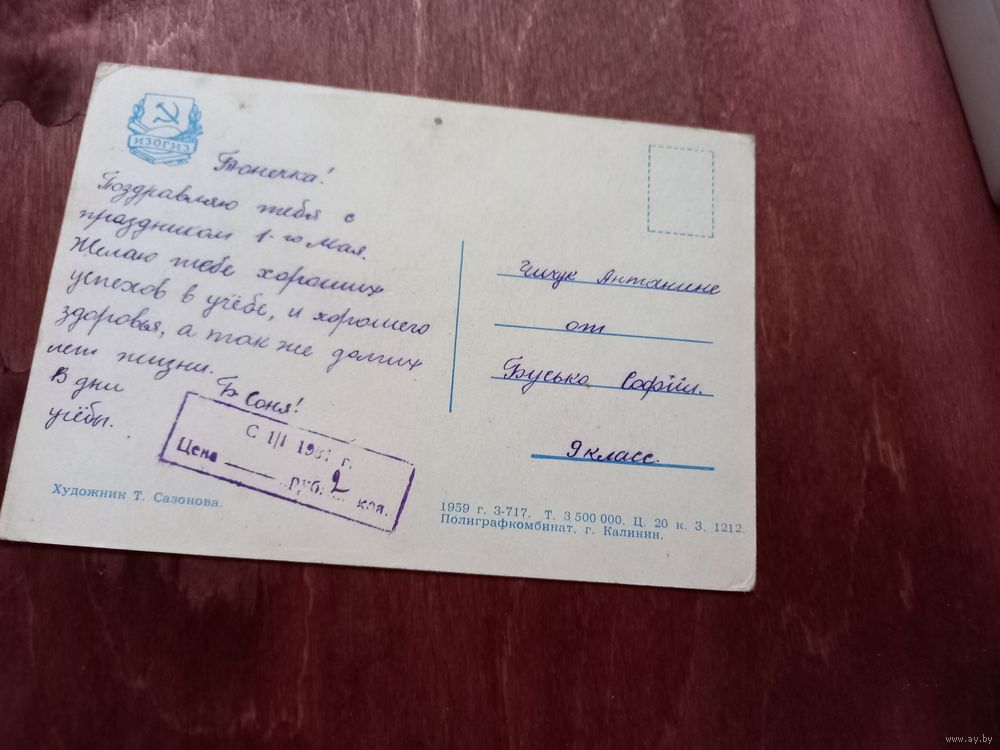 ИЗОГИЗ
Тонечка!
Поздравляю тебя с
праздником 1-го мая.
Желаю тебе хороших
успехов в учёбе, и хорошего
здоровья, а так же долгих
лет жизни.
В дни
учёбы.
Б Соня!
С 1/I 1961 г.
Цена руб. 2 коп.
Художник Т. Сазонова.
Чичук Антанине
от
Бусько Софіи.
9 класс.
1959 г. 3-717. Т. 3 500 000. Ц. 20 к. З. 1212.
Полиграфкомбинат, г. Калинин.
www.ay.by